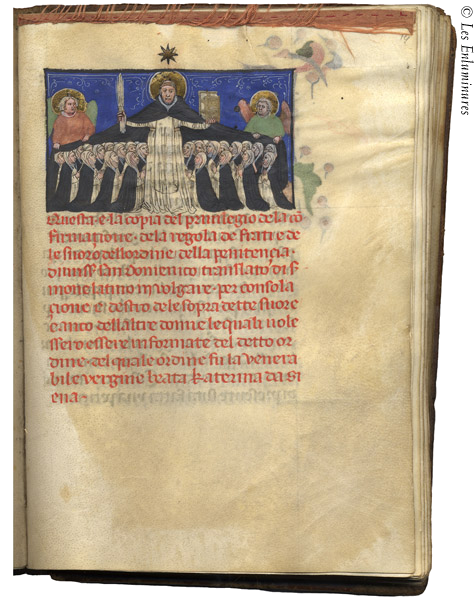 Questa e la copia del privilegio de la cō
firmaçione · de la regola de frati e de
le suoro dell ordine della penitençia ·
di miss San Domenico translato di s̄
mone latino in vulgare · per consola
çione e destro de le sopra dette suore
e anco dell altre donne le quali voles
sero essere informate del detto or
dine · del quale ordine fu la venera
bile vergine beata Katerina da Si
ena ·
© Les Enluminures